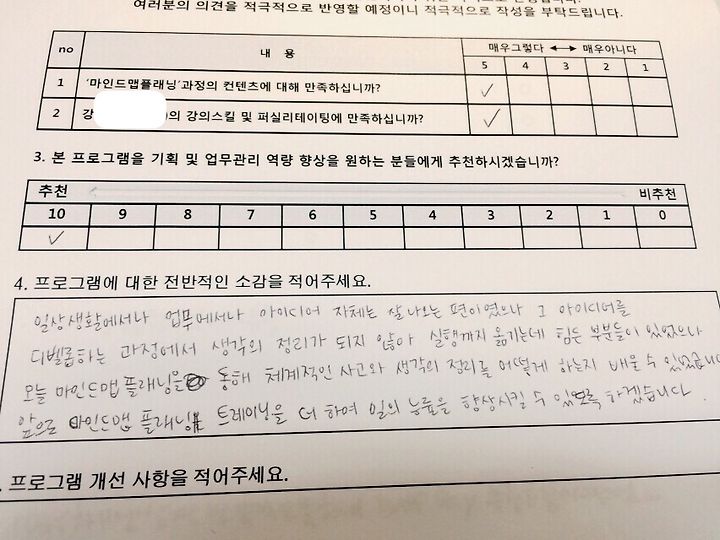 여러분의 의견을 적극적으로 반영할 예정이니 적극적으로 작성을 부탁드립니다.
no 내 용 매우그렇다 ↔ 매우아니다
5 4 3 2 1
1 '마인드맵플래닝'과정의 컨텐츠에 대해 만족하십니까? ✓
2 강 의 강의스킬 및 퍼실리테이팅에 만족하십니까? ✓
3. 본 프로그램을 기획 및 업무관리 역량 향상을 원하는 분들에게 추천하시겠습니까?
추천 비추천
10 9 8 7 6 5 4 3 2 1 0
✓
4. 프로그램에 대한 전반적인 소감을 적어주세요.
일상생활에서나 업무에서나 아이디어 자체는 잘 나오는 편이였으나 그 아이디어를
디벨롭하는 과정에서 생각의 정리가 되지 않아 실행까지 옮기는데 힘든 부분들이 있었으나
오늘 마인드맵 플래닝을 통해 체계적인 사고와 생각의 정리를 어떻게 하는지 배울 수 있었습니다
앞으로 마인드맵 플래닝 트레이닝을 더 하여 일의 능률을 향상시킬 수 있도록 하겠습니다.
. 프로그램 개선 사항을 적어주세요.